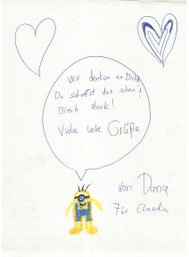 Wir denken an Dich
Du schaffst das schon!
Bleib stark!
Viele liebe Grüße
von Dana
Für Claudia